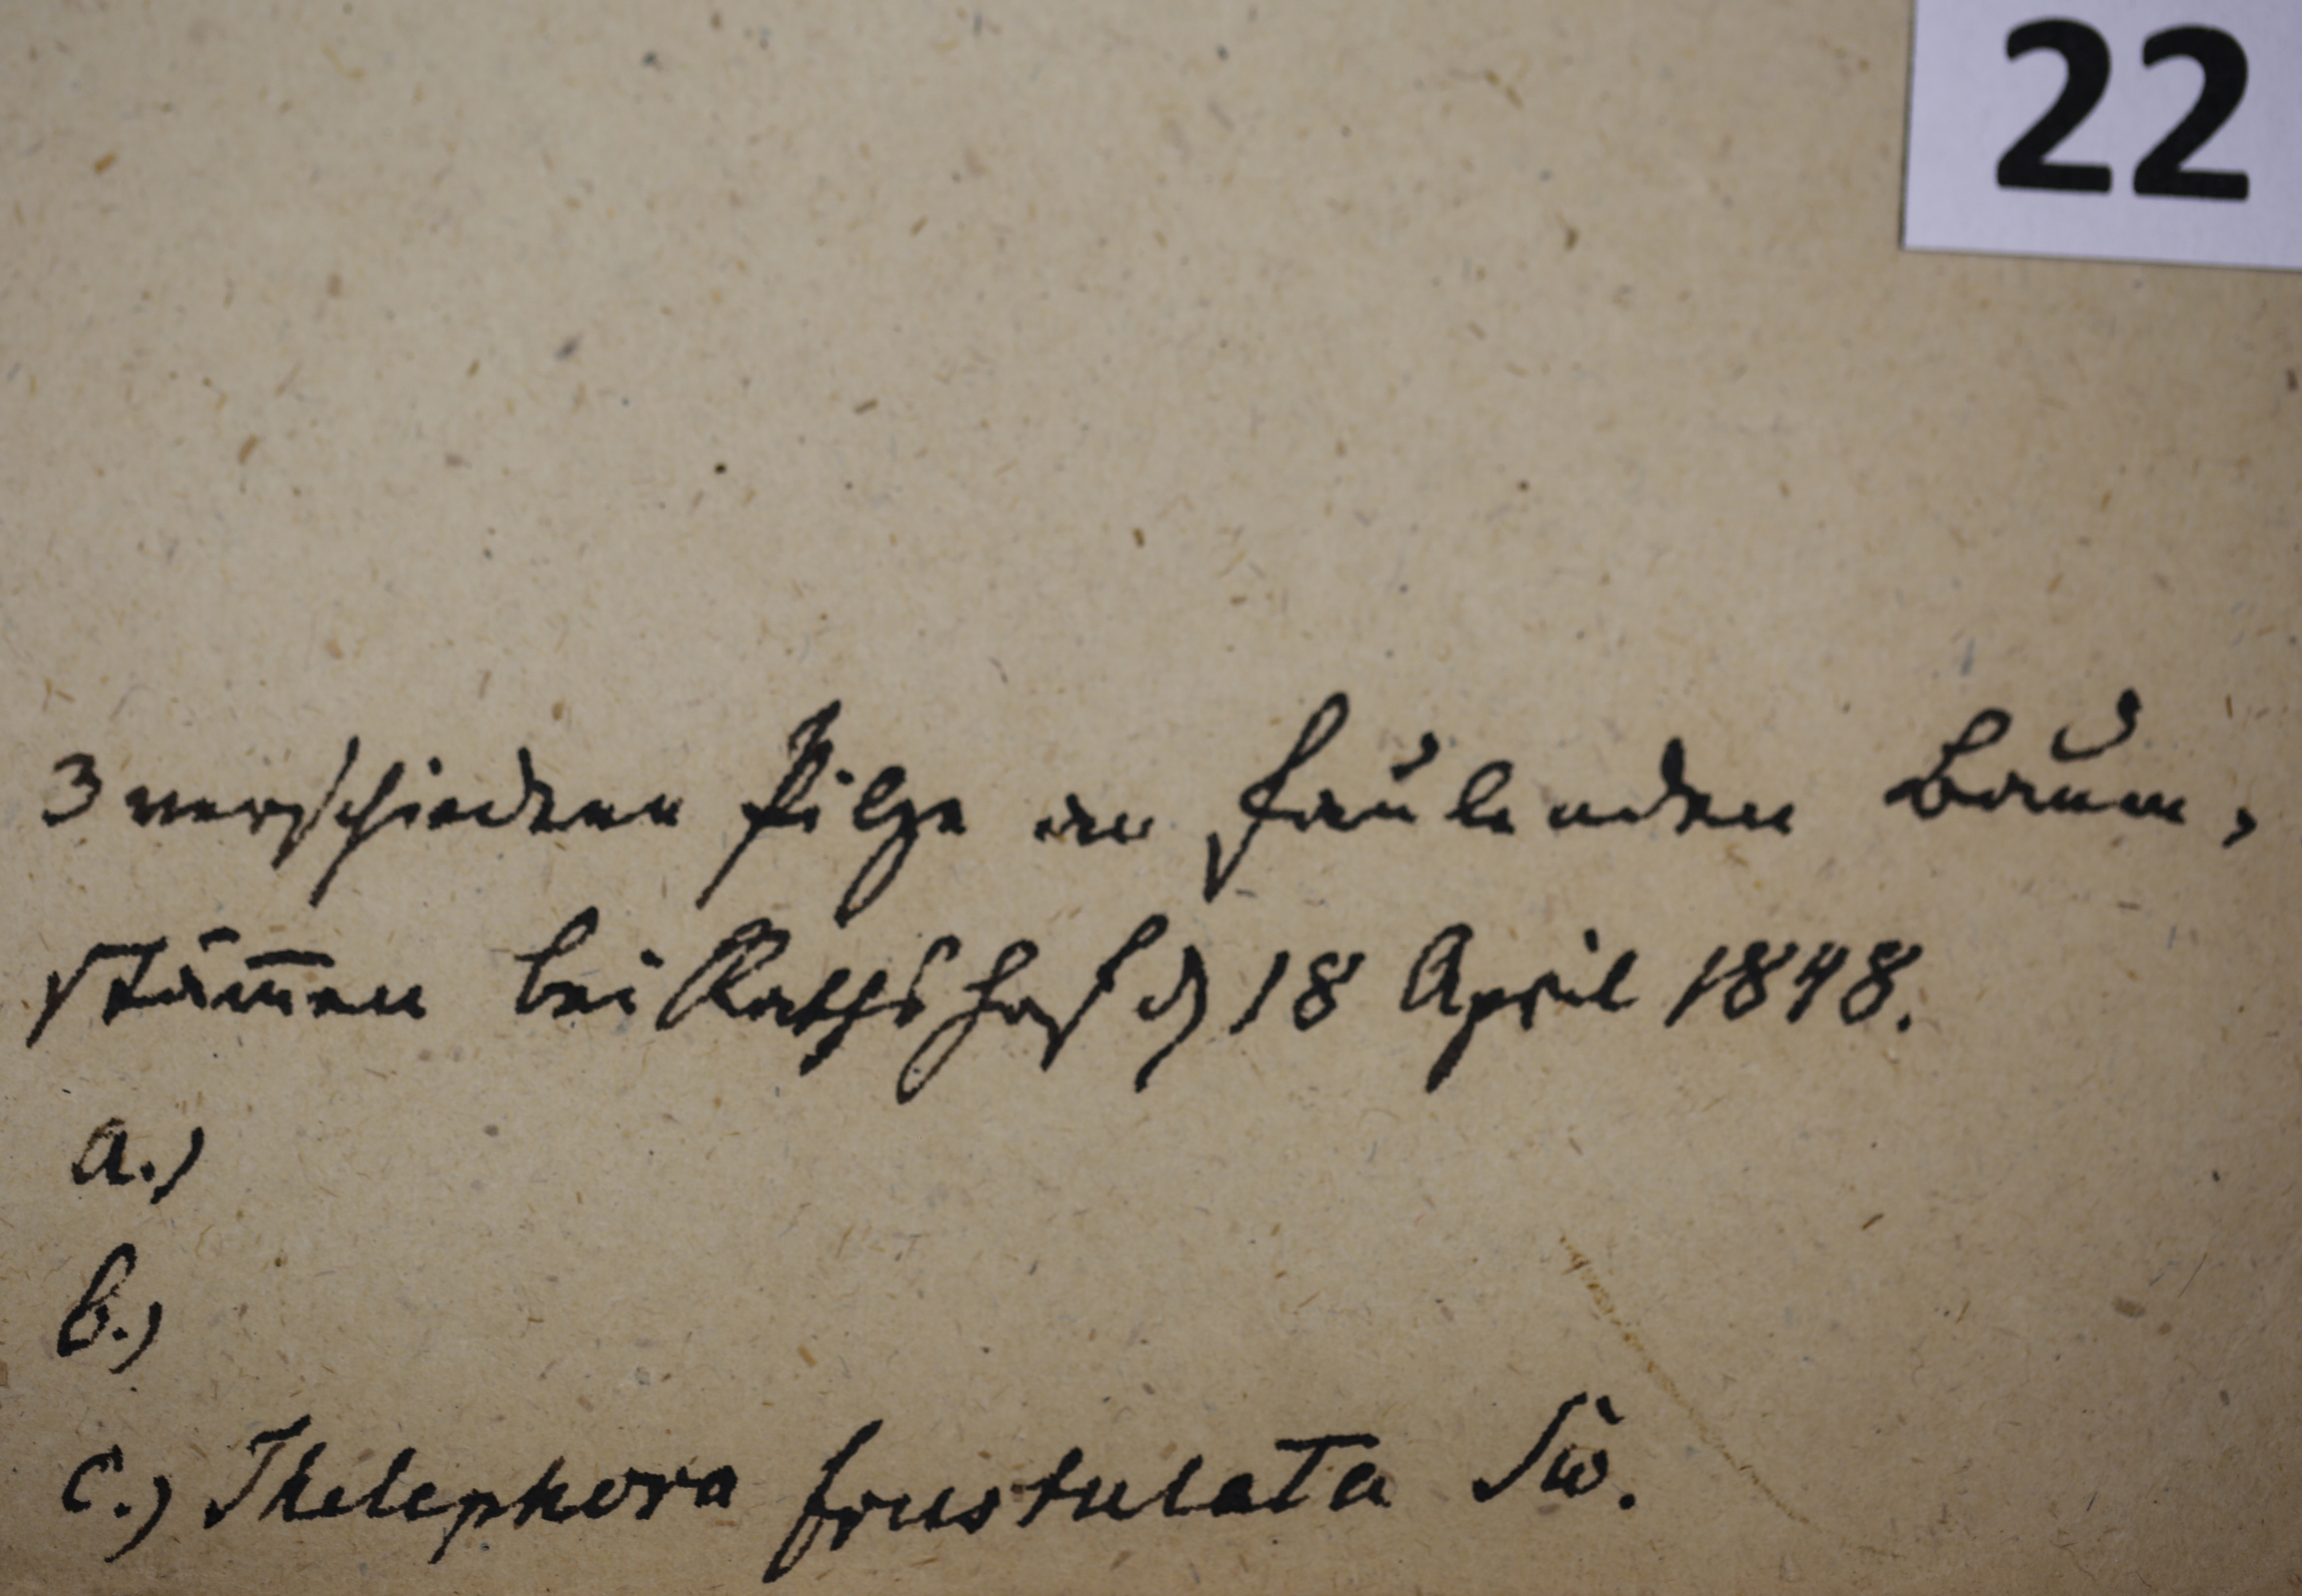 22
3 verschiedene Pilze an faulenden Baum-
stäm̅en bei Rathshof d 18 April 1848.
a.)
b.)
c.) Thelephora frustulata Sw.